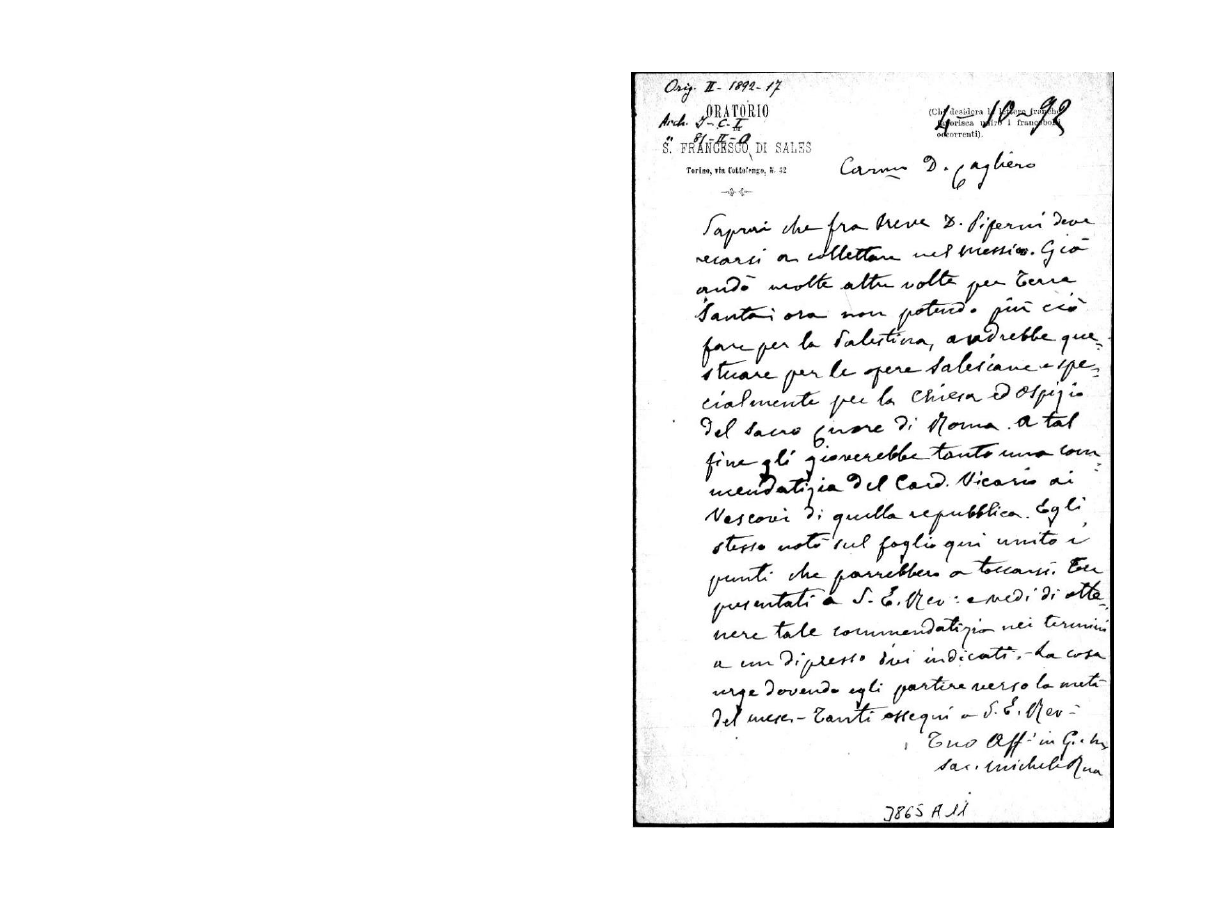 Orig. II - 1892-17
ORATORIO
Arch. S-C-I
" 81-II-0
S. FRANCESCO DI SALES
Torino, via Cottolengo, N. 32
(Chi desidera la lettera
favorisca unire i francobolli
occorrenti).
4-10-92
Carmo D. Cagliero
Saprai che fra breve D. Piperni deve
recarsi a collettare nel Messico. Già
andò molte altre volte per Terra
Santa; ora non potendo più ciò
fare per la Palestina, andrebbe que-
stuare per le opere Salesiane e spe-
cialmente per la Chiesa ed Ospizio
del Sacro Cuore di Roma. A tal
fine gli gioverebbe tanto una com-
mendatizia del Card. Vicario ai
Vescovi di quella repubblica. Egli
stesso notò sul foglio qui unito i
punti che parrebbero a toccarsi. Tu
presentati a S. E. Rev: e vedi di otte-
nere tale commendatizia nei termini
a un dipresso ivi indicati. - La cosa
urge dovendo egli partire verso la metà
del mese. - Tanti ossequi a S. E. Rev:
Tuo Aff: in G. e M.
Sac. Michele Rua
3865 A 11